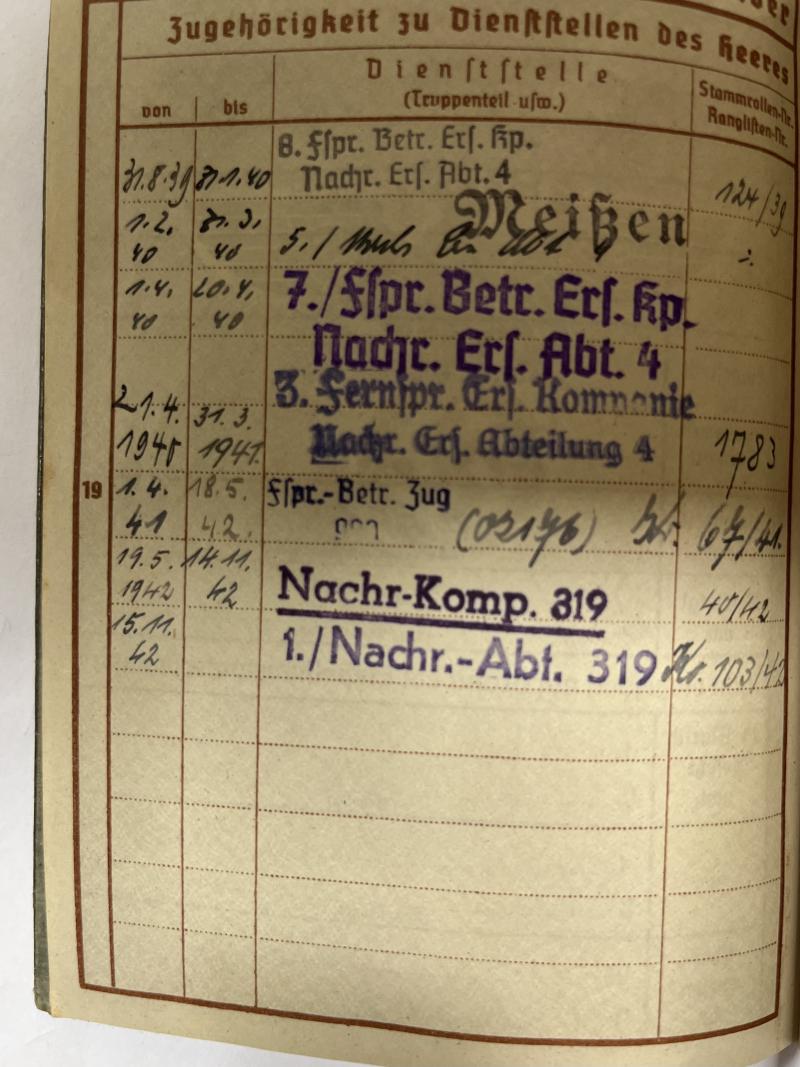 Zugehörigkeit zu Dienststellen des Heeres
von
bis
Dienststelle
(Truppenteil usw.)
Stammrollen-Nr.
Ranglisten-Nr.
31.8.39 31.1.40 8. Fspr. Betr. Ers. Kp. 124/39
Nachr. Ers. Abt. 4
Meißen
1.2. 31.3. 5./
40 40
1.4. 20.4. 7./Fspr. Betr. Ers. Kp.
40 40 Nachr. Ers. Abt. 4
21.4. 31.3. 3. Fernspr. Ers. Kompanie
1940 1941 Nachr. Ers. Abteilung 4 1783
19 1.4. 18.5. Fspr.-Betr. Zug
41 42. (02176) 67/41.
19.5. 14.11. Nachr-Komp. 319
1942 42 40/42
15.11. 1./Nachr.-Abt. 319 103/42
42